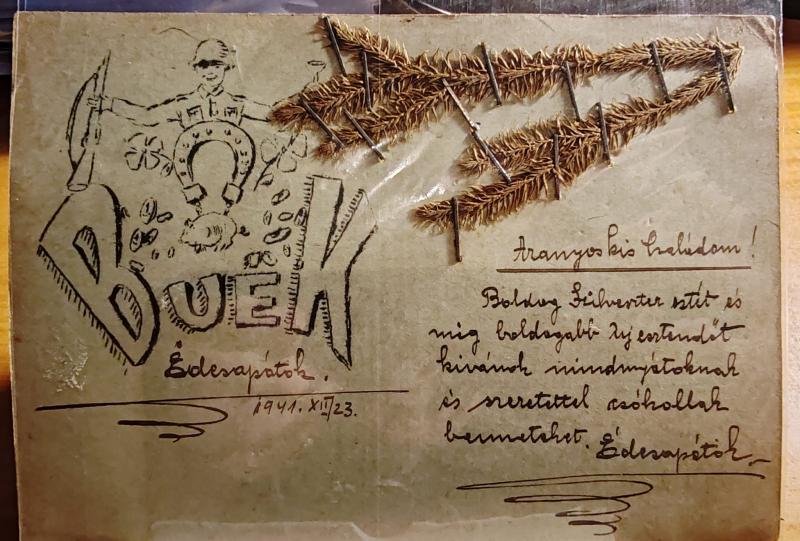 BUÉK
Édesapátok.
1941. XII/23.
Aranyos kis Családom!
Boldog Szilveszter estét és
még boldogabb Új esztendőt
kivánok mindnyájatoknak
és szeretettel csókollak
benneteket. Édesapátok